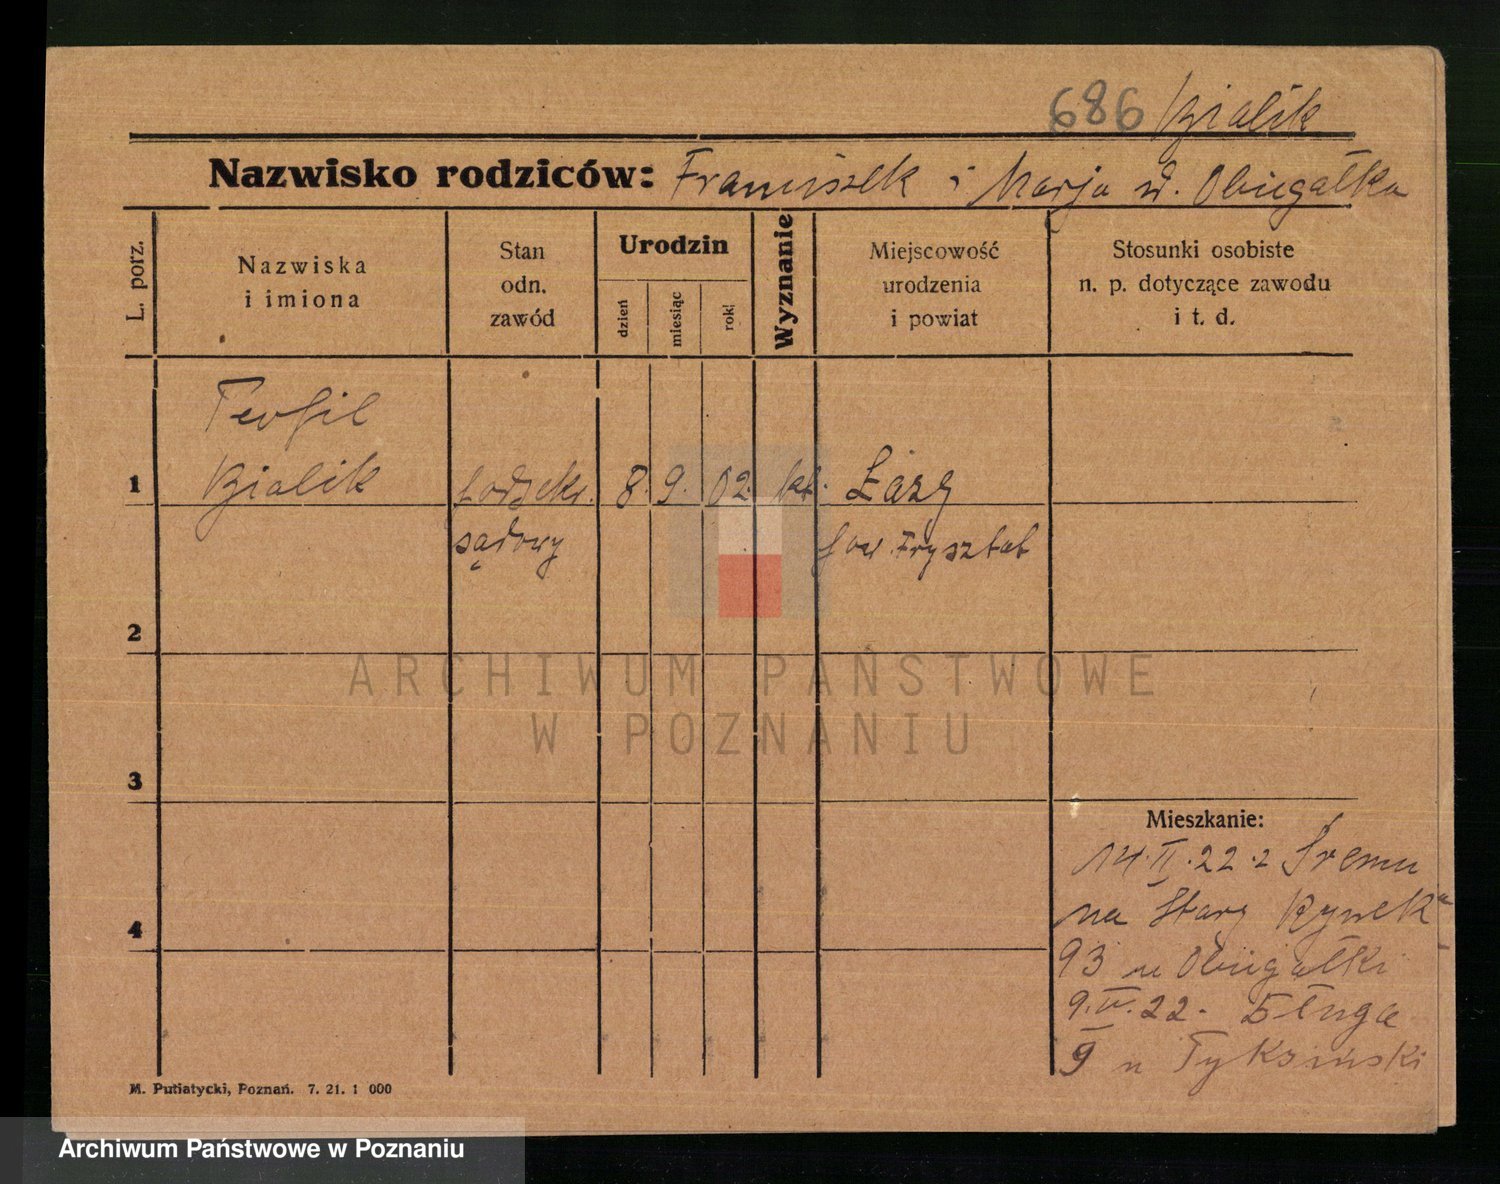 686 Bialik
Nazwisko rodziców: Franciszek i Marja d. Obiegałka
L. porz.
Nazwiska
i imiona
Stan
odn.
zawód
Urodzin
dzień
miesiąc
rok
Wyznanie
Miejscowość
urodzenia
i powiat
Stosunki osobiste
n. p. dotyczące zawodu
i t. d.
Teofil
1 Bialik 8. 9. 02. kat. Łazy
sądowy pow. Frysztat
2
3
4
Mieszkanie:
14.II.22 z Śremu
na Stary Rynek
93 u Obiegałki
9. 22. Długa
9 u
M. Putiatycki, Poznań. 7. 21. 1 000
ARCHIWUM PAŃSTWOWE
W POZNANIU
Archiwum Państwowe w Poznaniu